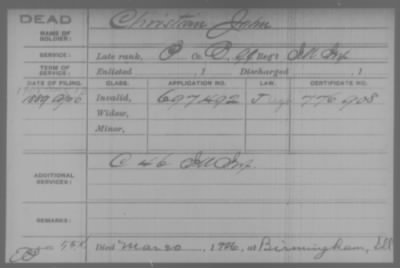 DEAD
NAME OF SOLDIER: Christian John
SERVICE: Late rank, P Co. D, Reg't Ill Inf
TERM OF SERVICE: Enlisted , 1 Discharged , 1
DATE OF FILING. CLASS. APPLICATION NO. LAW. CERTIFICATE NO.
1889 Invalid, 697492 J 776908
Widow,
Minor,
ADDITIONAL SERVICES: C 46 Ill Inf
REMARKS:
Died Mar 20, 1926, at Birmingham, Ill